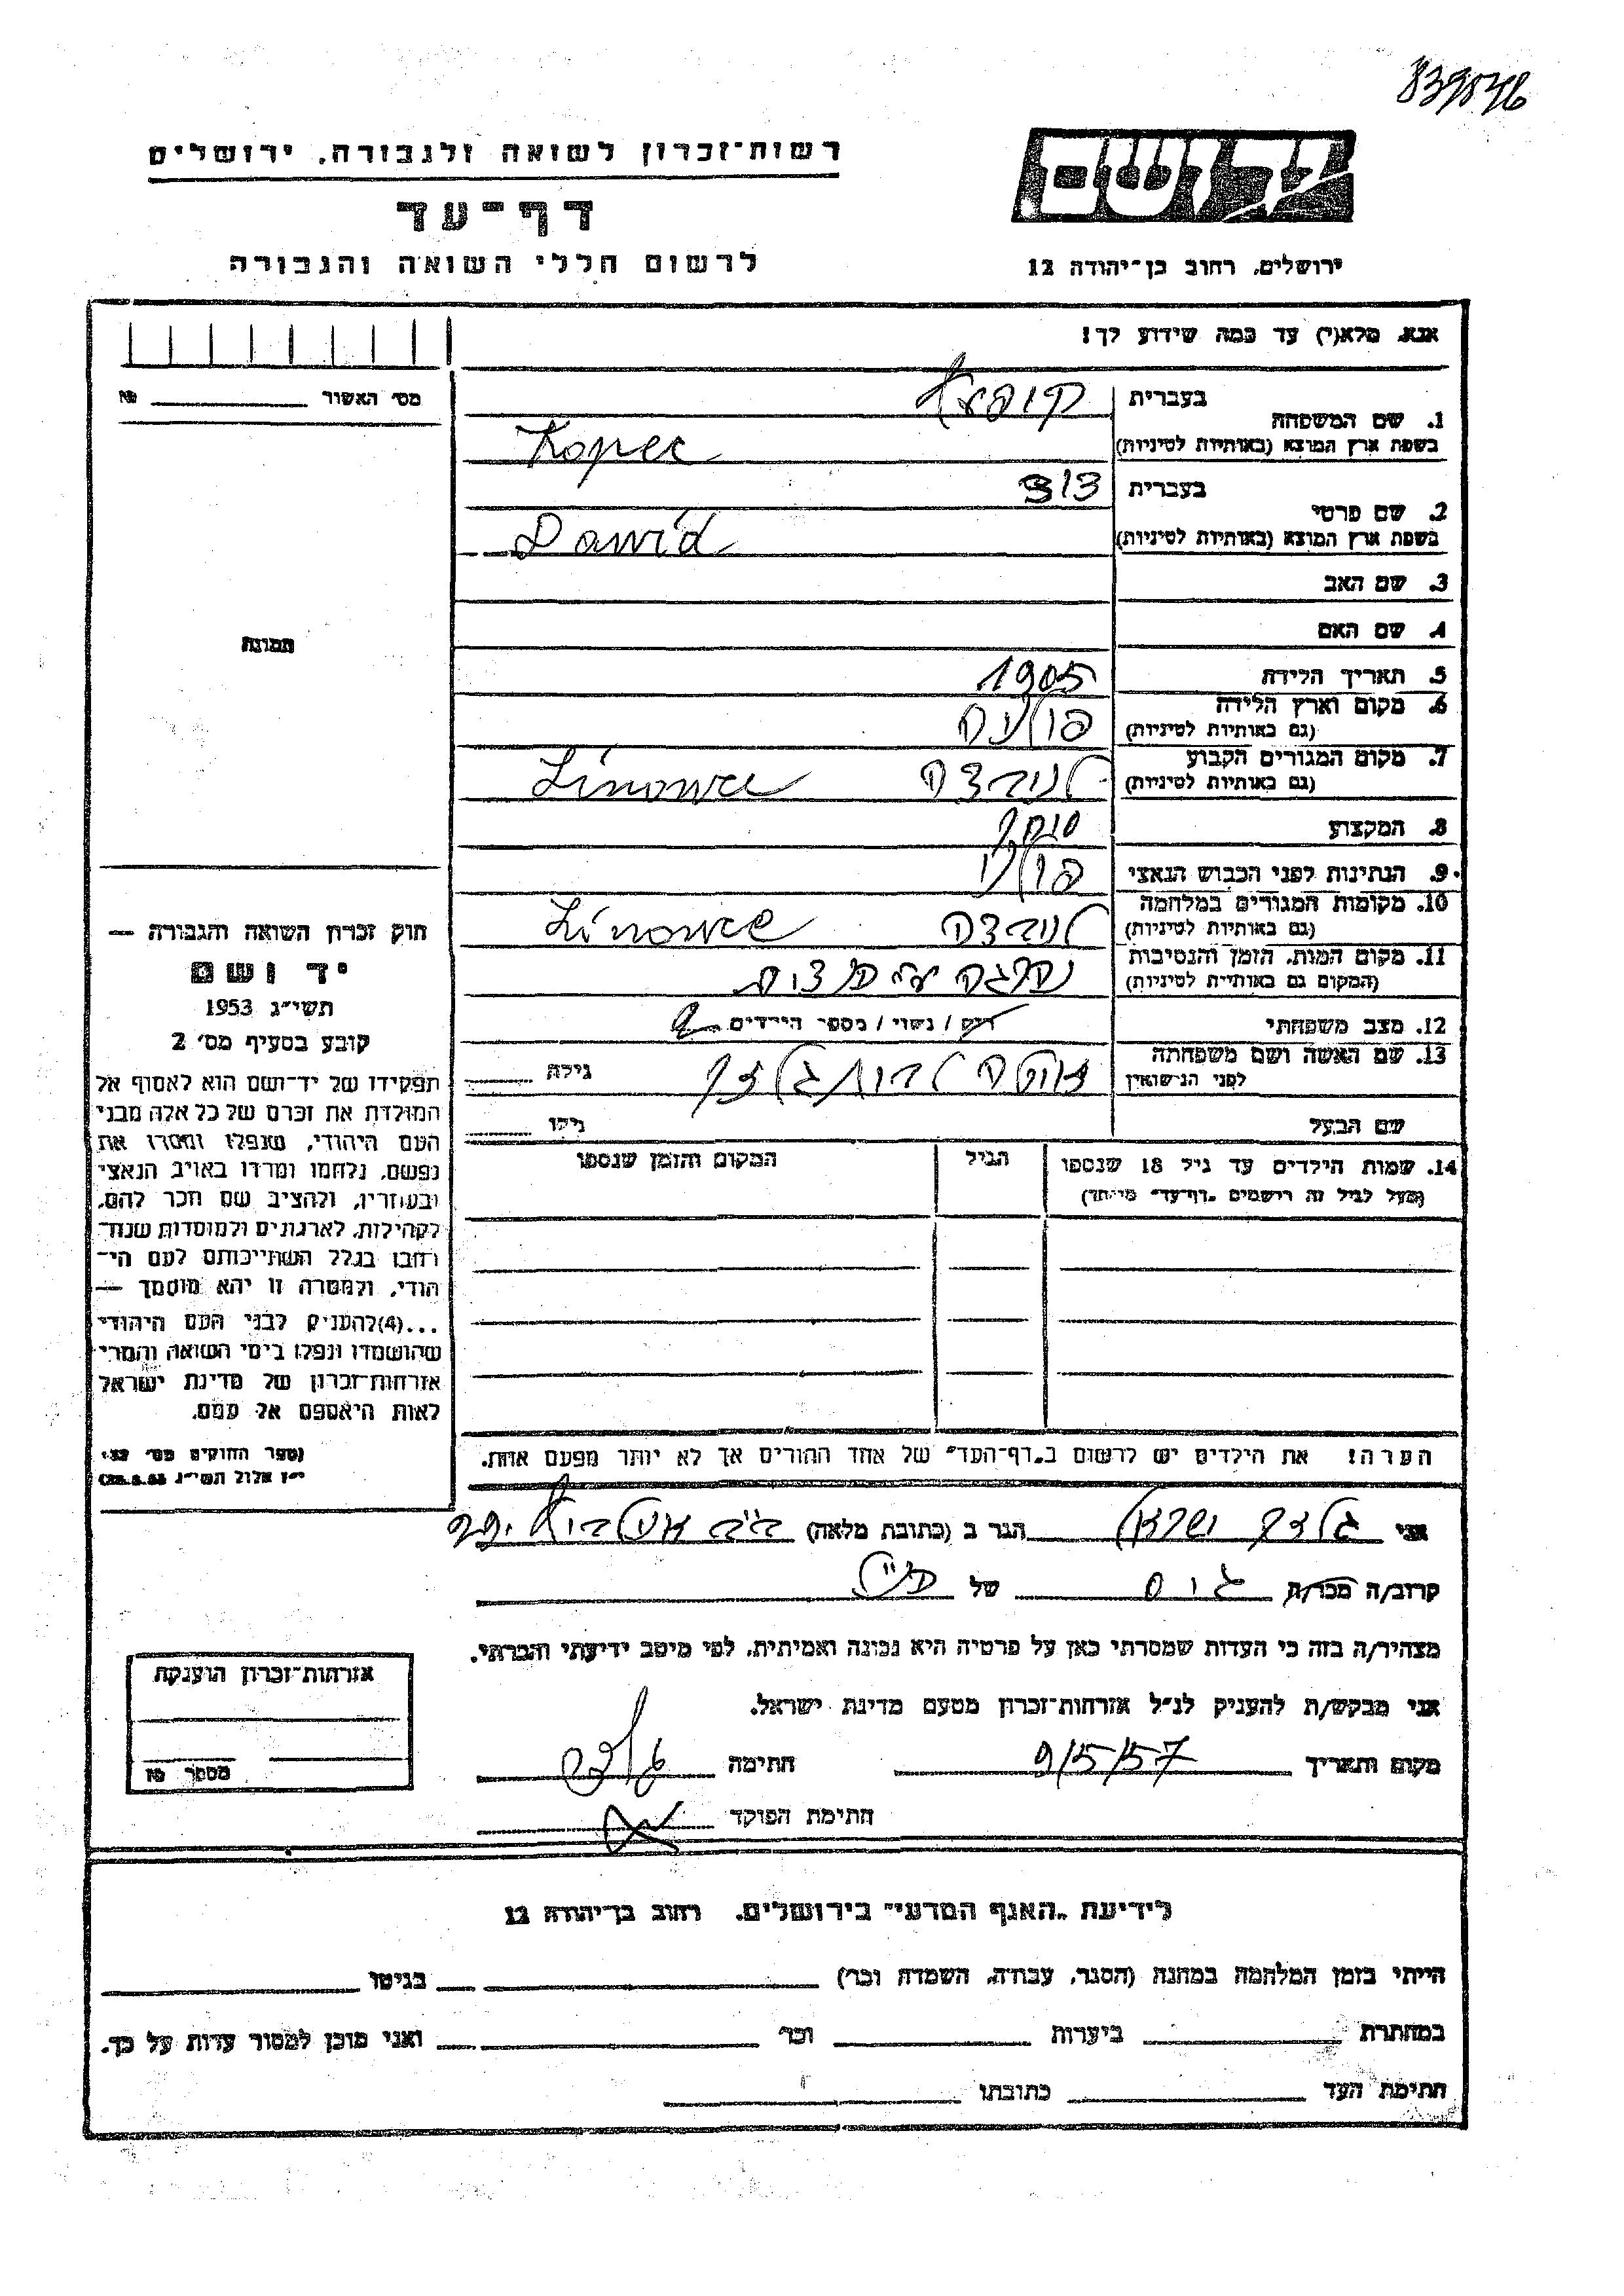 839846
רשות־זכרון לשואה ולגבורה, ירושלים
דף־עד
לרשום חללי השואה והגבורה
יד ושם
ירושלים, רחוב בן־יהודה 12
אנא, מלא(י) עד כמה שידוע לך!
מס׳ האשור № 
1. שם המשפחה
בעברית
בשפת ארץ המוצא (באותיות לטיניות)
Kopec
2. שם פרטי
בעברית דוד
בשפת ארץ המוצא (באותיות לטיניות)
Dawid
3. שם האב
4. שם האם
תמונה
5. תאריך הלידה 1905
6. מקום וארץ הלידה
(גם באותיות לטיניות)
פולניה
7. מקום המגורים הקבוע
(גם באותיות לטיניות)
Linowa
8. המקצוע סוחר
9. הנתינות לפני הכבוש הנאצי פולני
10. מקומות המגורים במלחמה
(גם באותיות לטיניות)
Linowa
11. מקום המות, הזמן והנסיבות
(המקום גם באותיות לטיניות)
12. מצב משפחתי רוק / נשוי / מספר הילדים 2
13. שם האשה ושם משפחתה
לפני הנישואין
גילה
שם הבעל גילו
14. שמות הילדים עד גיל 18 שנספו
(מעל לגיל זה רושמים "דף־עד" מיוחד)
הגיל
המקום והזמן שנספו
הערה! את הילדים יש לרשום ב"דף־העד" של אחד ההורים אך לא יותר מפעם אחת.
חוק זכרון השואה והגבורה —
יד ושם
תשי״ג 1953
קובע בסעיף מס׳ 2
תפקידו של יד־ושם הוא לאסוף אל
המולדת את זכרם של כל אלה מבני
העם היהודי, שנפלו ומסרו את
נפשם, נלחמו ומרדו באויב הנאצי
ובעוזריו, ולהציב שם וזכר להם,
לקהילות, לארגונים ולמוסדות שנח־
רבו בגלל השתייכותם לעם הי־
הודי, ולמטרה זו יהא מוסמך —
...(4)להעניק לבני העם היהודי
שהושמדו ונפלו בימי השואה והמרי
אזרחות־זכרון של מדינת ישראל
לאות היאספם אל עמם.
(ספר החוקים מס׳ 132,
י״ז אלול תשי״ג 28.8.53)
אני הגר ב (כתובת מלאה)
קרוב/ה מכר/ה גיס של
מצהיר/ה בזה כי העדות שמסרתי כאן על פרטיה היא נכונה ואמיתית, לפי מיטב ידיעתי והכרתי.
אני מבקש/ת להעניק לנ״ל אזרחות־זכרון מטעם מדינת ישראל.
מקום ותאריך 9/5/57 חתימה
חתימת הפוקד
אזרחות־זכרון הוענקה
מספר
לידיעת "האגף המדעי" בירושלים, רחוב בן־יהודה 12
הייתי בזמן המלחמה במחנה (הסגר, עבודה, השמדה וכו׳) בגיטו
במחתרת ביערות וכו׳ ואני מוכן למסור עדות על כך.
חתימת העד כתובתו